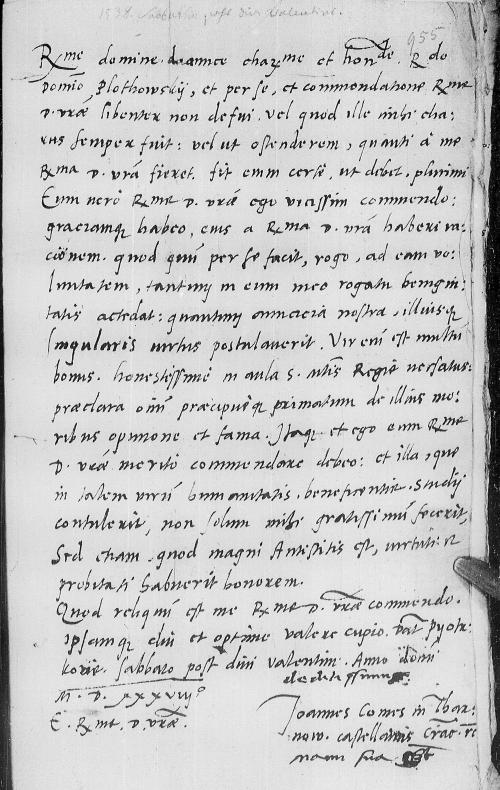 1538 Sabbatho post diem Valentini.
955
Rme domine. de amice charme et honde. Rdo
Domio Plothowskij, et per se, et commendatione Rme
D. vrae libenter non defui. vel quod ille mihi cha=
rus semper fuit: vel ut ostenderem, quanti à me
Rma D. vra fieret. fit enim certe, ut debet, plurimi
Eum vero Rme D. vrae ego vicissim commendo:
graciamq habeo, eius a Rma D. vra haberi ra=
cionem. quod quum per se facit, rogo, ad eam vo=
luntatem, tantum in eum meo rogatu benigni=
tatis accedat: quantum amicicia nostra, illiusq
singularis virtus postulaverit. Vir eni est multu
bonus. honestissime in aula S. Mtis Regie versatus:
praeclara oim praecipueq primatum de illius mo=
ribus opinione et fama. Itaq et ego eum Rme
D. vrae merito commendare debeo: et illa, que
in talem viru humanitatis, beneficentie, studij
contulerit, non solum mihi gratissimu fecerit,
Sed etiam, quod magni Antistitis est, virtuti et
probitati habuerit honorem.
Quod reliquu est me Rme D. vrae commendo.
ipsamq diu et optime valere cupio. Dat Pyotr=
kovie. Sabbato post diui Valentini. Anno domi
M. D. xxxviijo
E. Rme. D. vrae.
deditissimus
Joannes Comes in Thar=
now. castellanus Crac. etc
manu sua sst